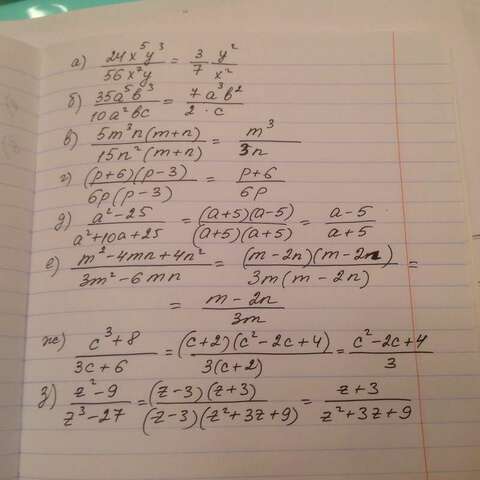 а) 24x⁵y³/56x²y = 3/7 y²/x²
б) 35a⁵b³/10a²bc = 7a³b²/2·c
в) 5m³n(m+n)/15n²(m+n) = m³/3n
г) (p+6)(p-3)/6p(p-3) = p+6/6p
д) a²-25/a²+10a+25 = (a+5)(a-5)/(a+5)(a+5) = a-5/a+5
е) m²-4mn+4n²/3m²-6mn = (m-2n)(m-2n)/3m(m-2n) =
= m-2n/3m
ж) c³+8/3c+6 = (c+2)(c²-2c+4)/3(c+2) = c²-2c+4/3
з) z²-9/z³-27 = (z-3)(z+3)/(z-3)(z²+3z+9) = z+3/z²+3z+9